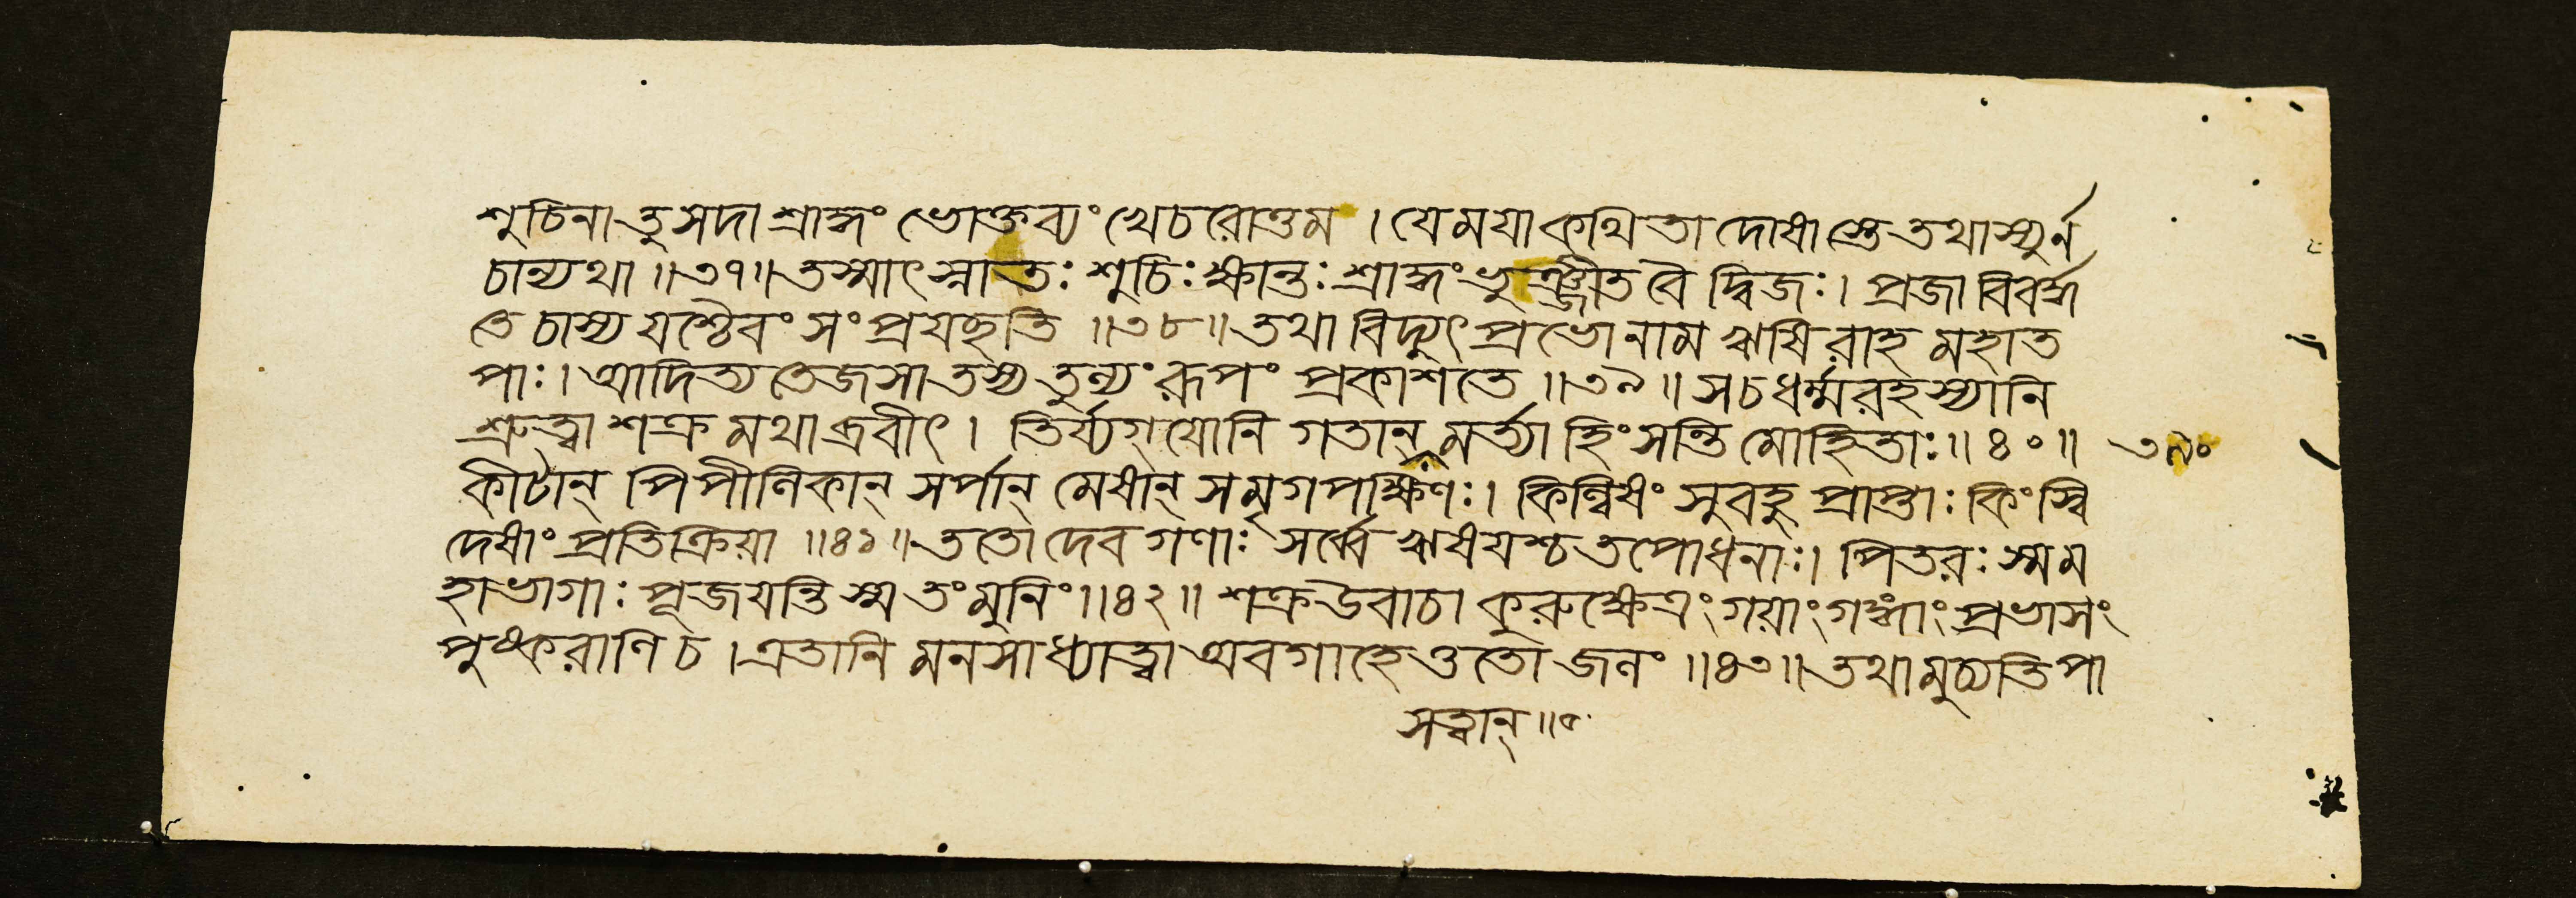 শুচিনা তু সদা শ্রাদ্ধং ভোক্তব্যং খেচরোত্তম । যে ময়া কথিতা দোষাস্তে তথা স্যুর্ন
চান্যথা ॥৩৭॥ তস্মাৎ স্নাতঃ শুচিঃ ক্ষান্তঃ শ্রাদ্ধং ভুঞ্জীত বৈ দ্বিজঃ । প্রজা বিবর্দ্ধ
তে চাস্য যশ্চৈবং সংপ্রযচ্ছতি ॥৩৮॥ তথা বিদ্যুৎপ্রভো নাম ঋষিরাহ মহাত
পাঃ । আদিত্যতেজসা তস্য তুল্যং রূপং প্রকাশতে ॥৩৯॥ স চ ধর্ম্মরহস্যানি
শ্রুত্বা শক্রমথাব্রবীৎ । তির্য্যগ্যোনিগতান্ মর্ত্যা হিংসন্তি মোহিতাঃ ॥৪০॥
কীটান্ পিপীলিকান্ সর্পান্ মেষান্ সমৃগপক্ষিণঃ । কিল্বিষং সুবহু প্রাপ্তাঃ কিংস্বি
দেষাং প্রতিক্রিয়া ॥৪১॥ ততো দেবগণাঃ সর্ব্বে ঋষয়শ্চ তপোধনাঃ । পিতরঃ স্ম ম
হাভাগাঃ পূজয়ন্তি স্ম তং মুনিং ॥৪২॥ শক্র উবাচ । কুরুক্ষেত্রং গয়াং গঙ্গাং প্রভাসং
পুষ্করাণি চ । এতানি মনসা ধ্যাত্বা অবগাহেত্ততো জলং ॥৪৩॥ তথা মুচ্যতি পা
সত্বান্ ॥